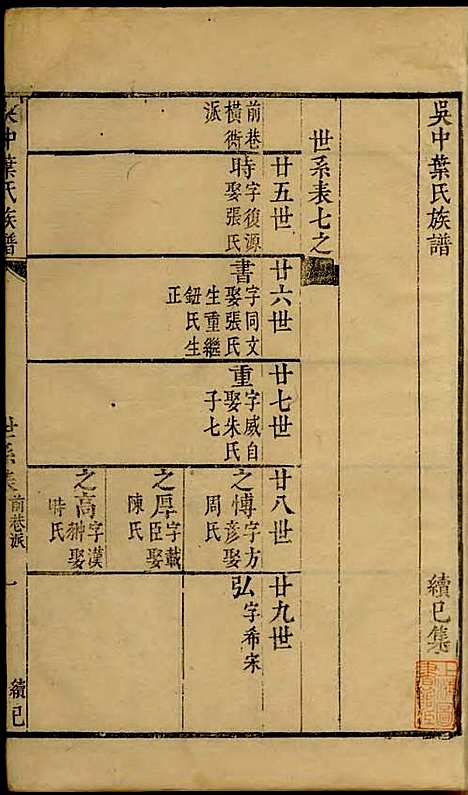 吳中葉氏族譜
續巳集
世系表七之
前巷
橫衖
派
廿五世
時字復源
娶張氏
廿六世
書字同文
娶張氏
生重繼
鈕氏生
正
廿七世
重字威自
娶朱氏
子七
廿八世
之愽字方
彥娶
周氏
之厚字載
臣娶
陳氏
之高字漢
翀娶
時氏
廿九世
弘字希宋
吳中葉氏族譜
世系表
前巷派
一
續巳
上海圖
書館藏